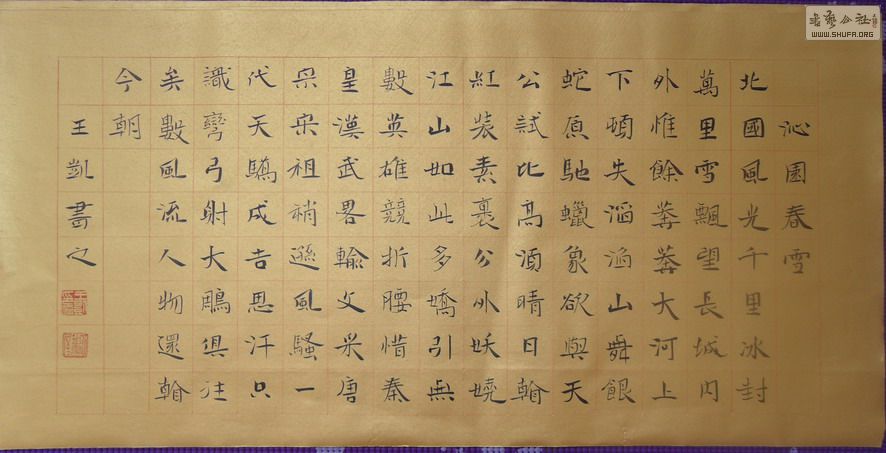 沁園春雪
北國風光千里冰封
萬里雪飄望長城内
外惟餘莽莽大河上
下頓失滔滔山舞銀
蛇原馳蠟象欲與天
公試比高湏晴日看
紅裝素裹分外妖嬈
江山如此多嬌引無
數英雄競折腰惜秦
皇漢武畧輸文采唐
宗宋祖稍遜風騷一
代天驕成吉思汗只
識彎弓射大鵰俱往
矣數風流人物還看
今朝
王凱書之
書藝公社
WWW.SHUFA.ORG